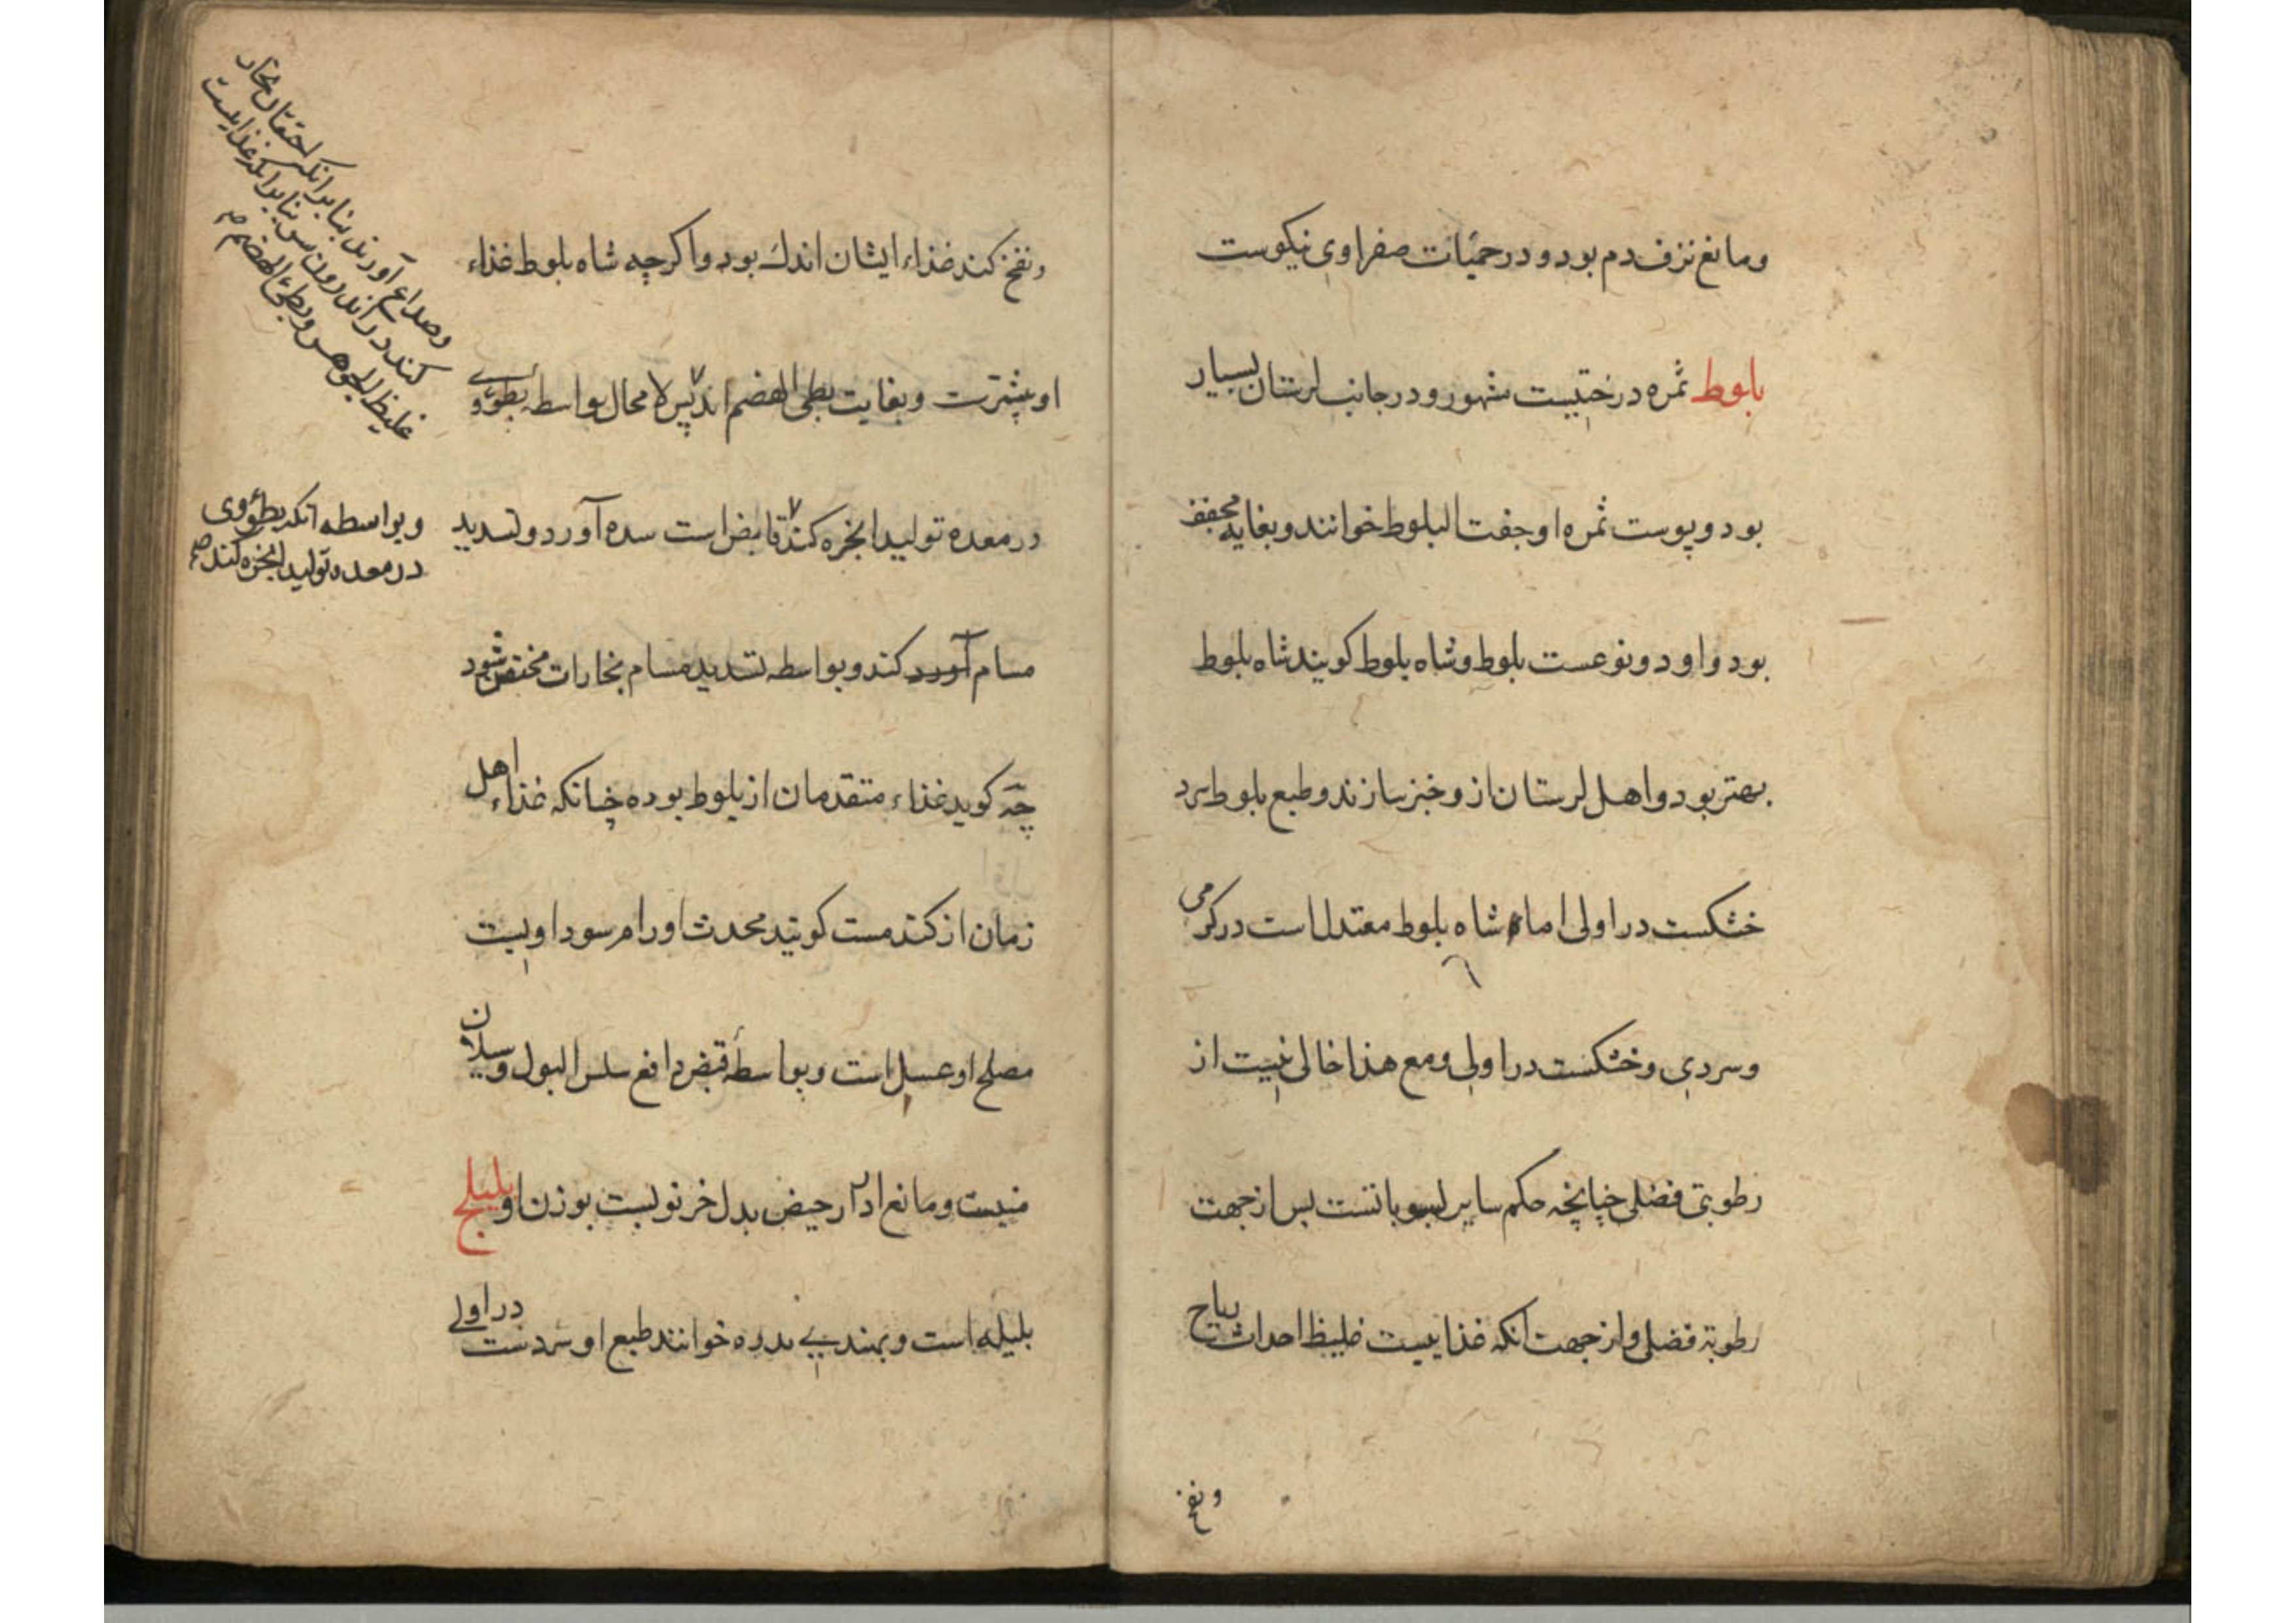 ومانع نزف دم بود و در حمیات صفراوی نیکوست
بلوط ثمره درختیست مشهور و در جانب لرستان بسیار
بود و پوست ثمره او جفت البلوط خوانند و بغایه مجفف
بود و او دو نوعست بلوط و شاه بلوط کویند شاه بلوط
بهتر بود و اهل لرستان ازو خبز سازند و طبع بلوط سرد
خشکست در اولی اما شاه بلوط معتدل است در کرمی
و سردی و خشکست در اولی و مع هذا خالی نیست از
رطوبتی فضلی چنانچه حکم سایر لبوباتست بس از جهت
رطوبة فضلی و از جهت آنکه غذاییست غلیظ احداث ریاح
و نفخ
و نفخ کند غذاء ایشان اندك بود و اکرچه شاه بلوط غذاء
او بیشترست و بغایت بطی الهضم اند پس لا محال بواسطه بطوء وی
در معده تولید ابخره کند قابض است سده آورد و تسدید
مسام آورد کند و بواسطه تسدید مسام بخارات مختقن شود
چه کوید غذاء متقدمان از بلوط بوده چنانکه غذاء اهل
زمان از کندمست کویند محدث اورام سوداویست
مصلح او عسل است و بواسطه قبض دافع سلس البول و سیلان
منیست و مانع ادرار حیض بدل خرنوبست بوزن او بلیلج
بلیله است و بهندی بدره خوانند طبع او سردست در اولی
وصداع آورند بنا برانکه احتقان بخار
کند در اندرون سر بنا برانکه غذاییست
غلیظ الجوهر و بطئ الهضم صح
و بواسطه آنکه بطوء وی
در معده تولید ابخره کند صح